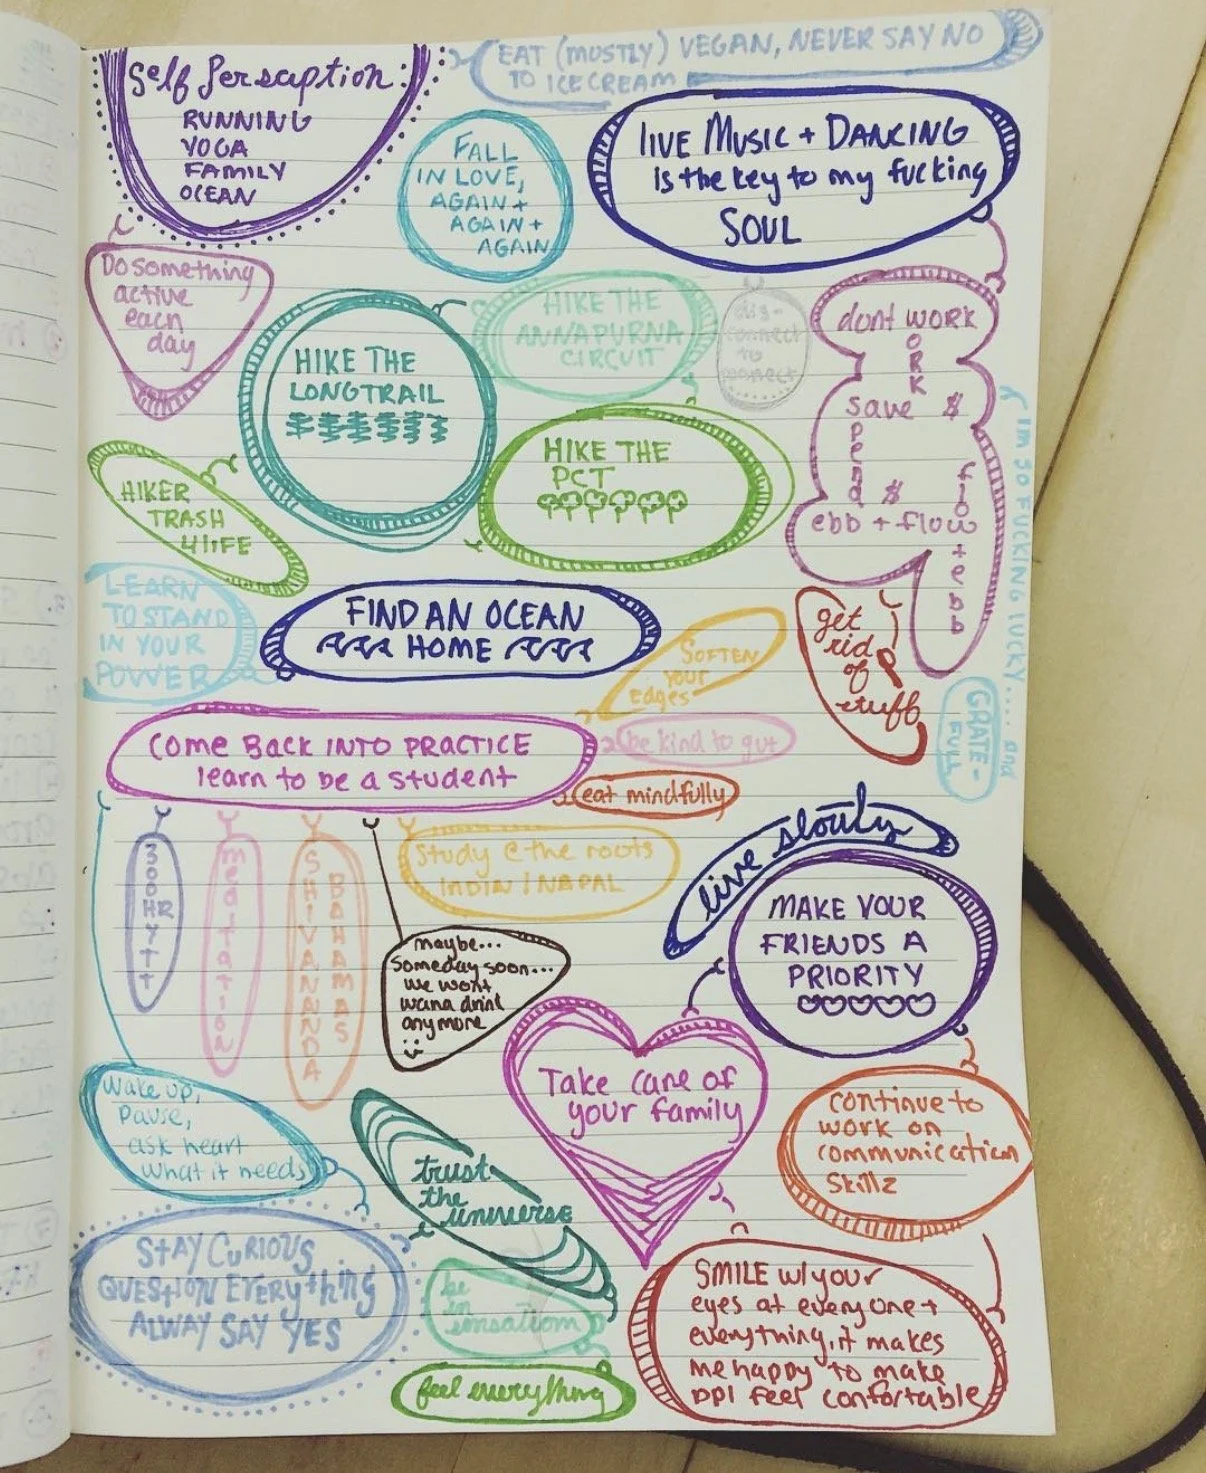 Self Persaption:
RUNNING
YOGA
FAMILY
OCEAN
EAT (MOSTLY) VEGAN, NEVER SAY NO
TO ICECREAM
FALL
IN LOVE,
AGAIN +
AGAIN +
AGAIN
LIVE MUSIC + DANCING
Is the key to my fucking
SOUL
Do something
active
each
day
HIKE THE
LONGTRAIL
HIKE THE
ANNAPURNA
CIRCUIT
dis-
connect
to
connect
dont WORK
O
R
K
save $
p
e
n
d $
ebb + flow
f
l
o
w
+
e
b
b
I'M SO FUCKING LUCKY.... and
GRATE-
FULL
HIKER
TRASH
4LIFE
HIKE THE
PCT
LEARN
TO STAND
IN YOUR
POWER
FIND AN OCEAN
HOME
SOFTEN
your
edges
get
rid
of
stuff
COME BACK INTO PRACTICE
learn to be a student
be kind to gut
eat mindfully
300HR YTT
meditation
SHIVANNANDA
BAHAMAS
Study @ the roots
INDIA / NAPAL
maybe...
someday soon...
we wont
wana drink
anymore
:)
live slowly
MAKE YOUR
FRIENDS A
PRIORITY
Wake up,
Pause,
ask heart
what it needs
trust
the
universe
Take care of
your family
continue to
work on
communication
Skillz
STAY CURIOUS
QUESTION EVERYthing
ALWAY SAY YES
be
in
sensation
feel everything
SMILE w/your
eyes at everyone +
everything, it makes
me happy to make
ppl feel confortable